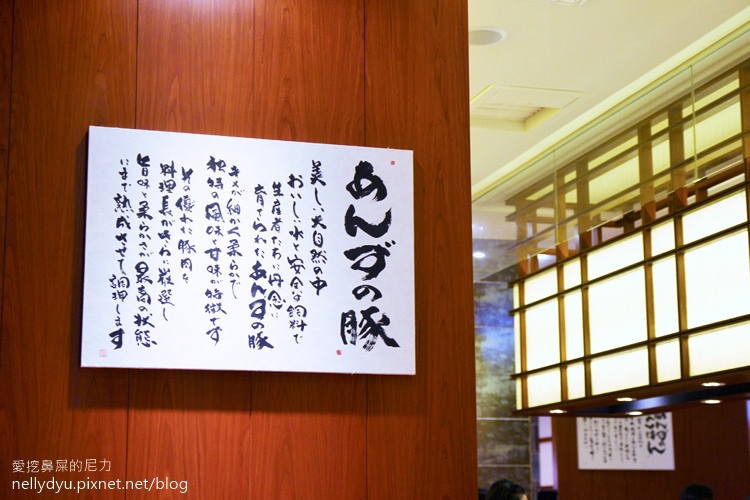 あんずの豚
美しい大自然の中
おいしい水と安全な飼料で
生産者たちに丹念に
育てられたあんずの豚
キメが細く柔らかで
独特の風味と甘味が特徴です
その優れた豚肉を
料理長がさらに厳選し
旨味と柔らかさが最高の状態
にまで熟成させて調理します
愛挖鼻屎的尼力
nellydyu.pixnet.net/blog